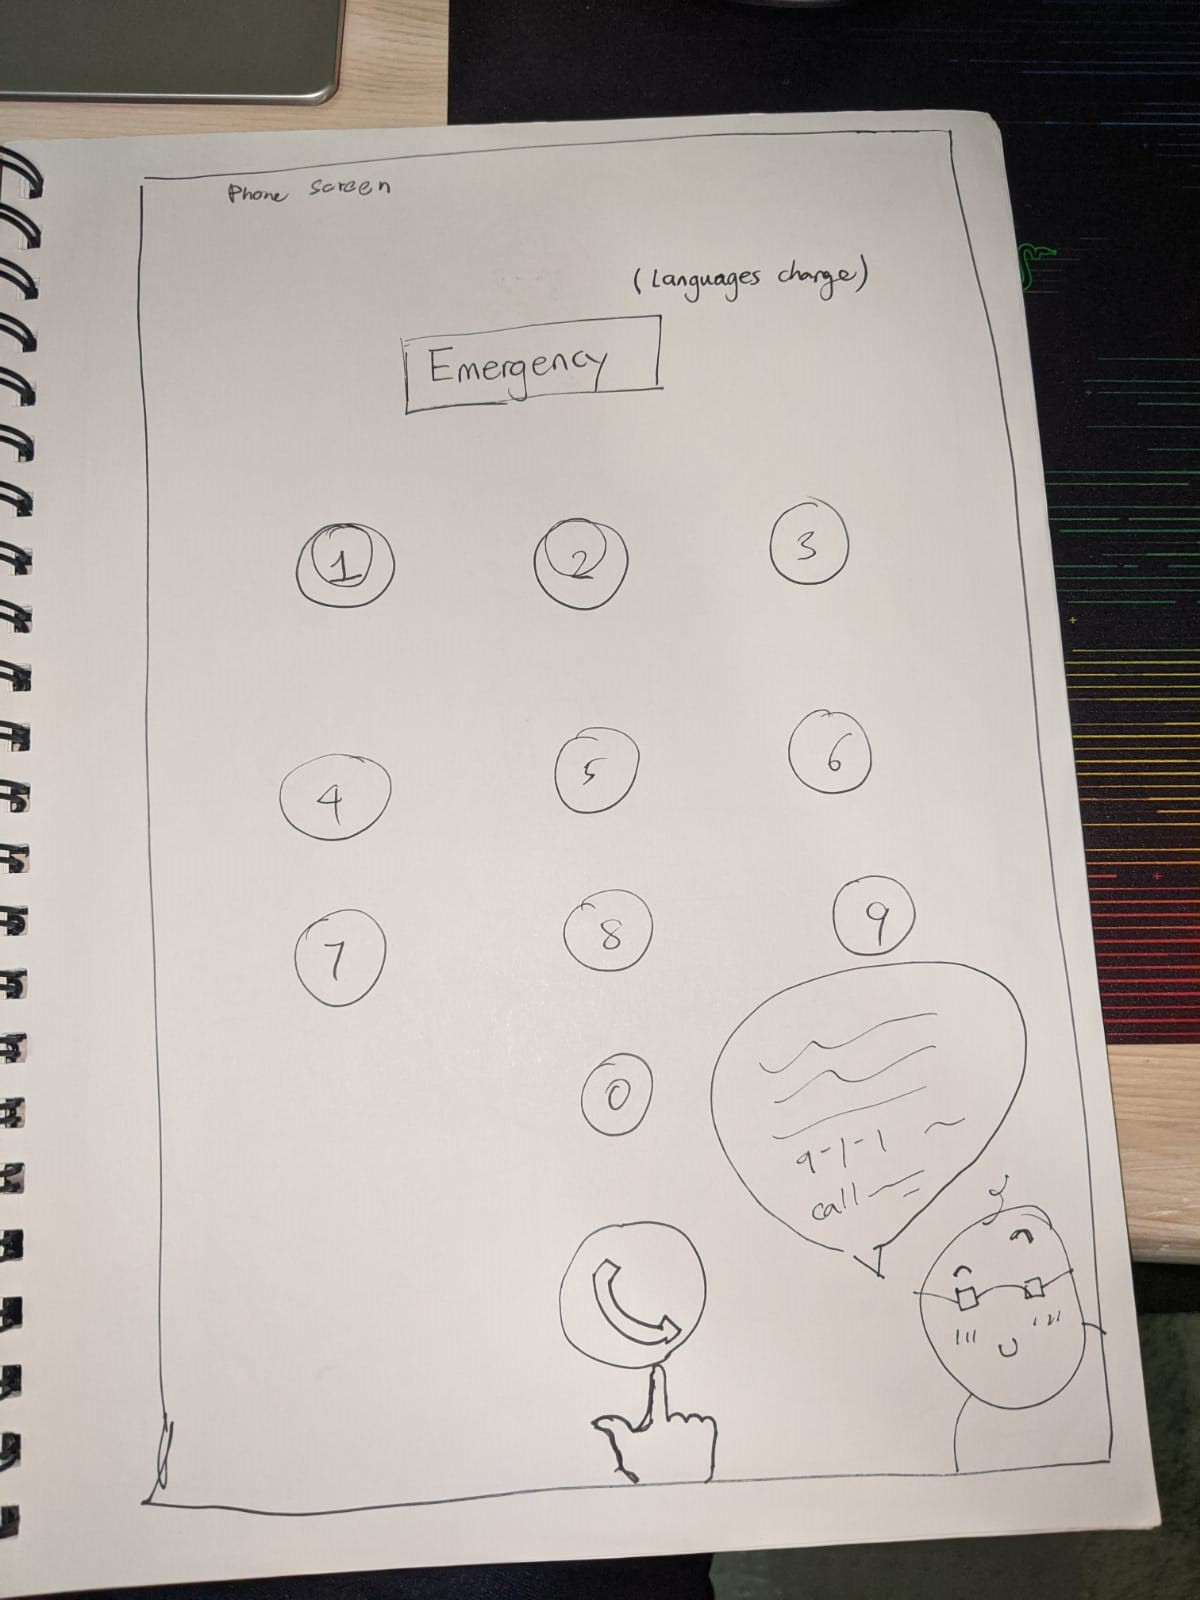 Phone Screen
(Languages change)
Emergency
1 2 3
4 5 6
7 8 9
0
9-1-1
call